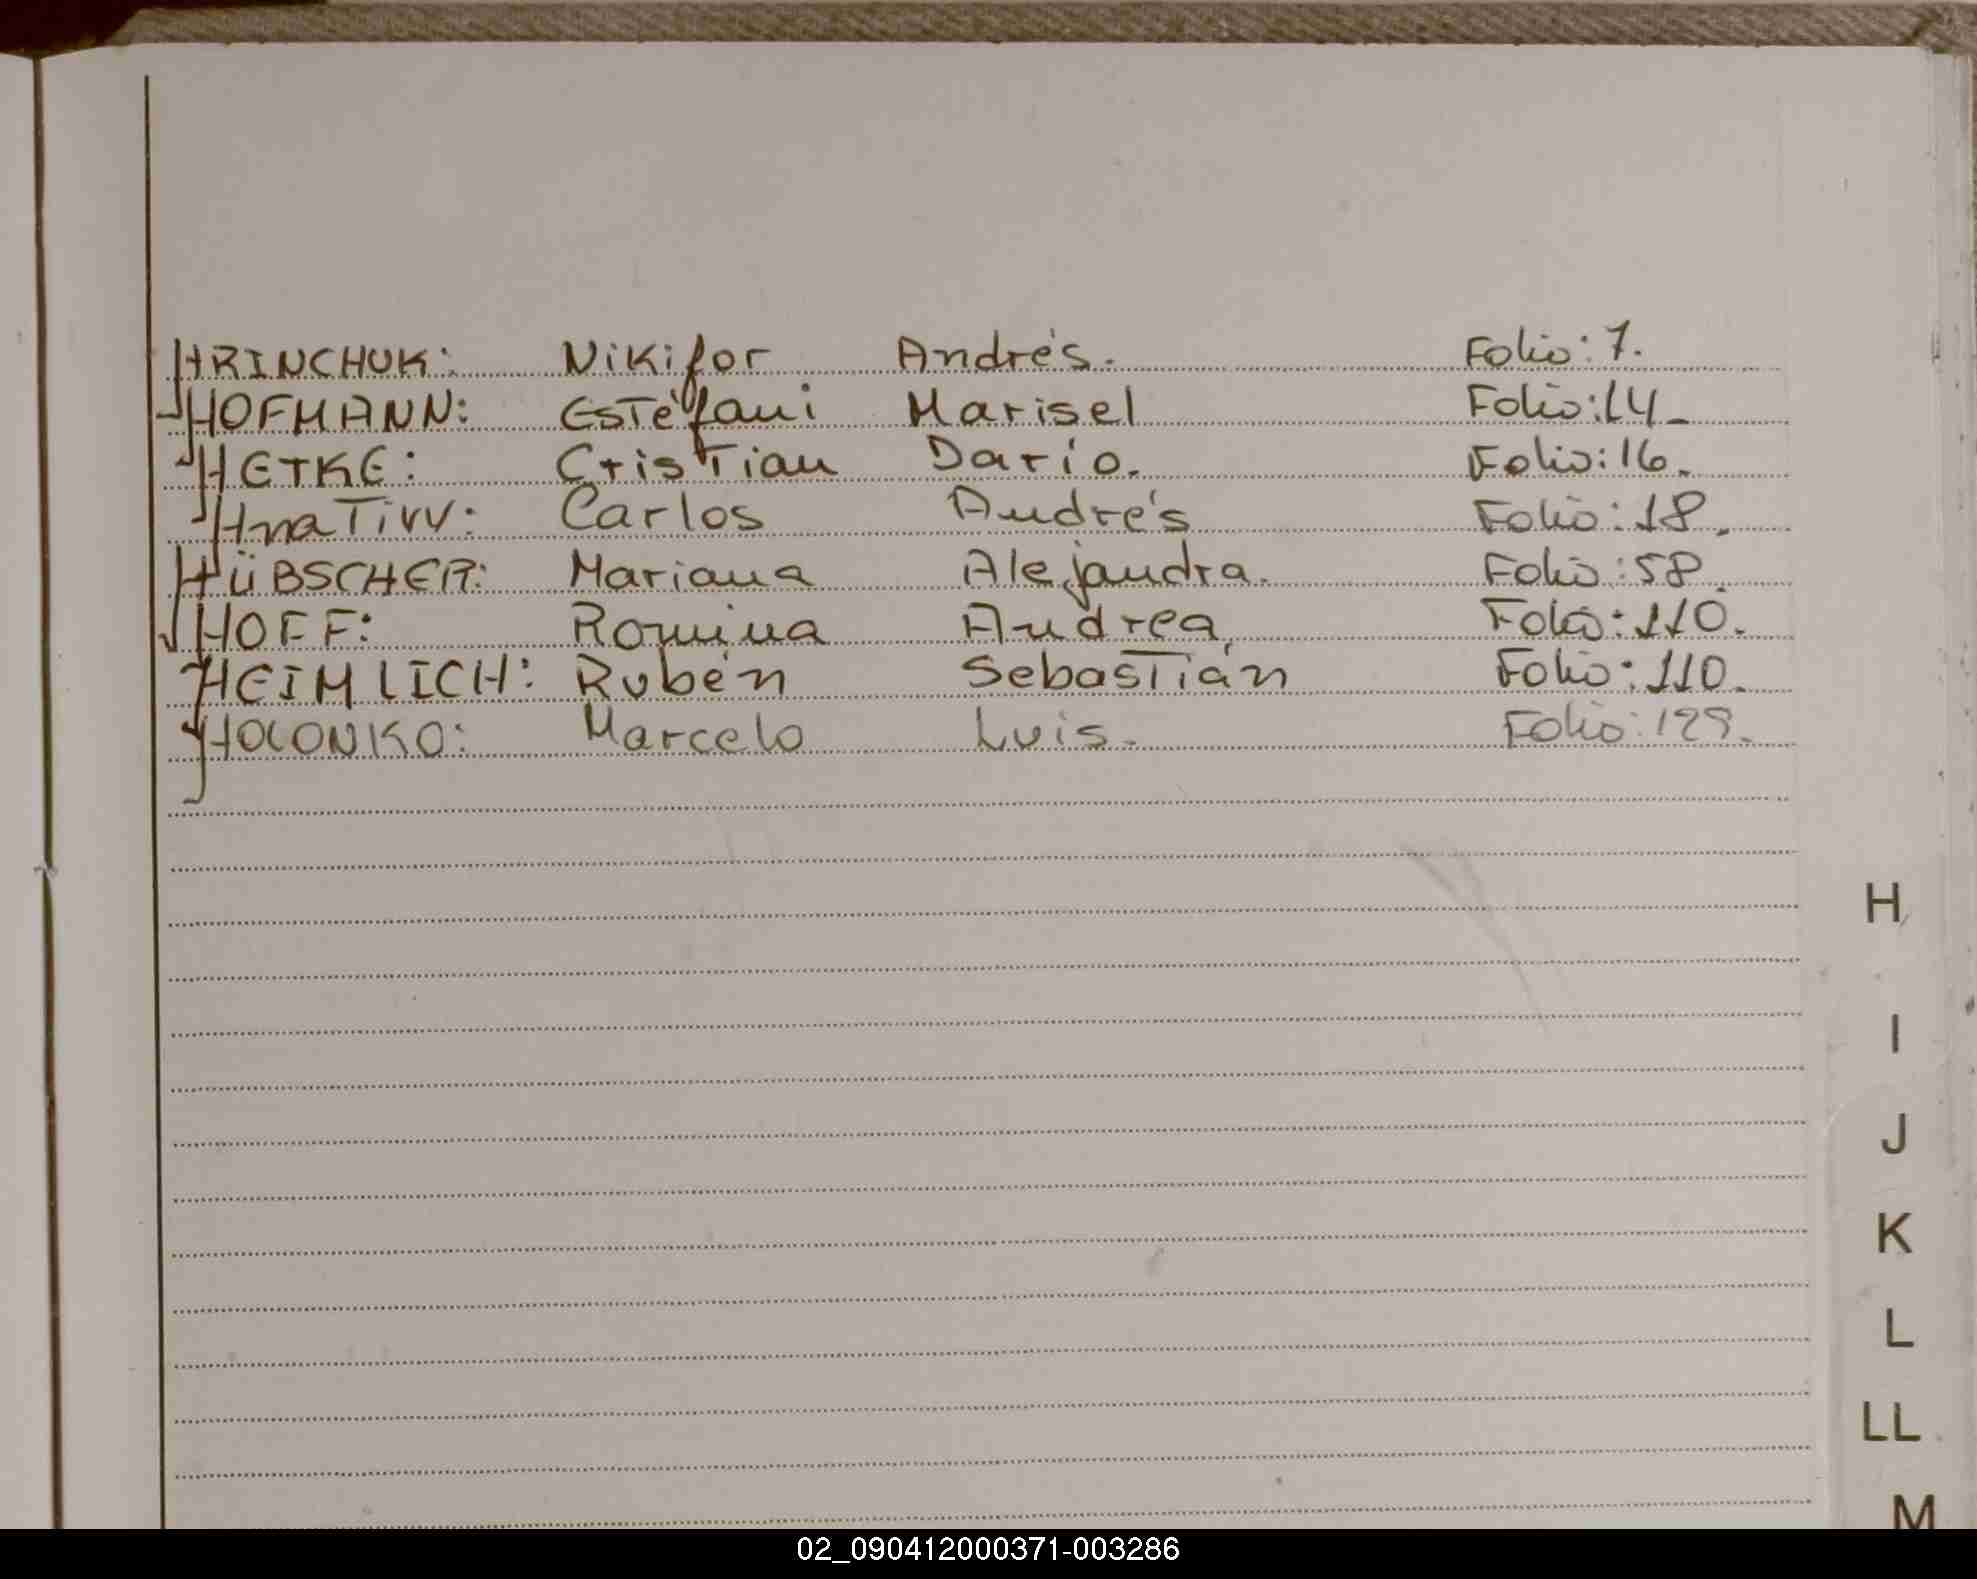 HRINCHUK: Nikifor Andrés. Folio: 7.
HOFMANN: Estéfani Marisel Folio: 14
HETKE: Cristian Darío. Folio: 16.
HnaTivv: Carlos Andrés Folio: 18.
HÜBSCHER: Mariana Alejandra. Folio: 58.
HOFF: Romina Andrea Folio: 110.
HEIMLICH: Rubén Sebastián Folio: 110.
HOLONKO: Marcelo Luis. Folio: 129.
H
I
J
K
L
LL
M
02_090412000371-003286